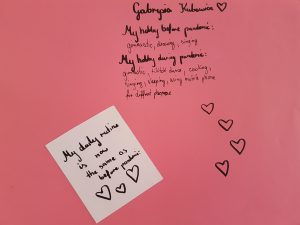 My hobby before pandemic:
gymnastic, dancing, singing
My hobby during pandemic:
gymnastic, dance, cooking,
singing, sleeping, using mobile phone
for different
My daily routine
is now
the same as
before pandemic.